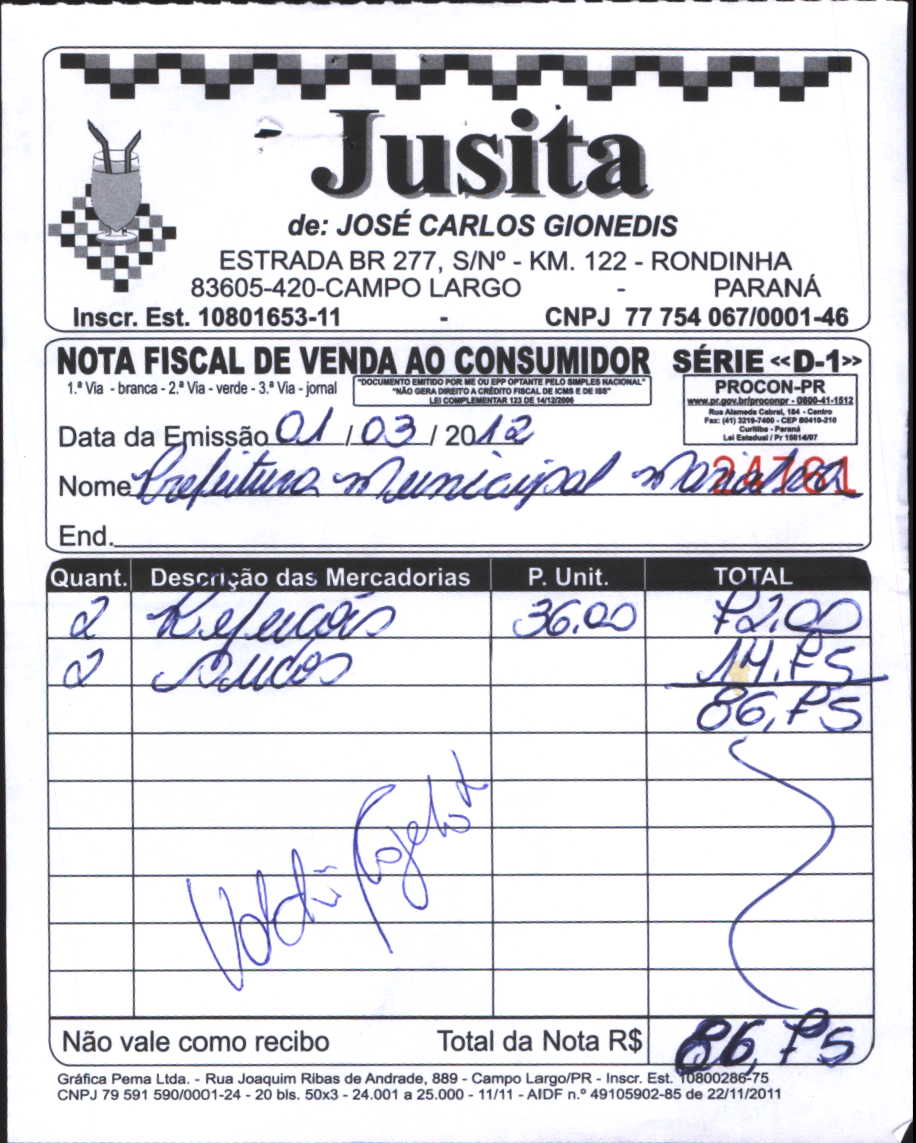 Jusita
de: JOSÉ CARLOS GIONEDIS
ESTRADA BR 277, S/Nº - KM. 122 - RONDINHA
83605-420-CAMPO LARGO - PARANÁ
Inscr. Est. 10801653-11 - CNPJ 77 754 067/0001-46
NOTA FISCAL DE VENDA AO CONSUMIDOR SÉRIE «D-1»
1.ª Via - branca - 2.ª Via - verde - 3.ª Via - jornal
"DOCUMENTO EMITIDO POR ME OU EPP OPTANTE PELO SIMPLES NACIONAL"
"NÃO GERA DIREITO A CRÉDITO FISCAL DE ICMS E DE ISS"
LEI COMPLEMENTAR 123 DE 14/12/2006
PROCON-PR
www.pr.gov.br/proconpr - 0800-41-1512
Rua Alameda Cabral, 184 - Centro
Fax: (41) 3219-7400 - CEP 80410-210
Curitiba - Paraná
Lei Estadual / Pr 15014/07
Data da Emissão 01 / 03 / 2012
24781
Nome Prefeitura Municipal
End.
Quant. Descrição das Mercadorias P. Unit. TOTAL
2 Refeições 36,00 72,00
2 Sucos 14,75
86,75
Não vale como recibo Total da Nota R$ 86,75
Gráfica Pema Ltda. - Rua Joaquim Ribas de Andrade, 889 - Campo Largo/PR - Inscr. Est. 10800286-75
CNPJ 79 591 590/0001-24 - 20 bls. 50x3 - 24.001 a 25.000 - 11/11 - AIDF n.º 49105902-85 de 22/11/2011